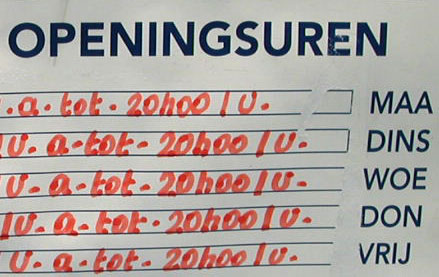 OPENINGSUREN
.a-tot-20h00/U. MAA
U-a-tot-20h00/U. DINS
U-a-tot-20h00/U. WOE
/U-a-tot-20h00/U. DON
U-a-tot-20h00/U. VRIJ